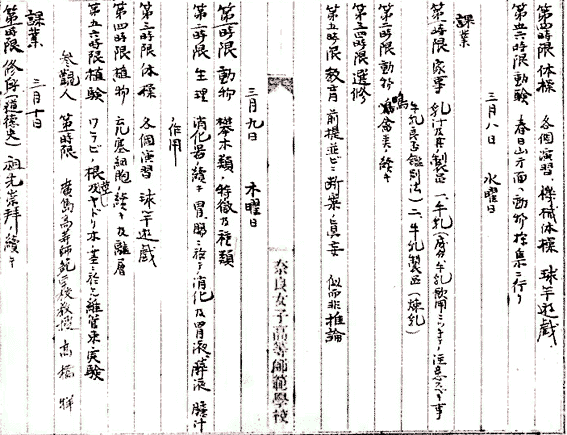 第四時限 体操 各個演習、機械体操 球竿遊戯、
第五六時限 動験 春日山方面ヘ動物採集ニ行ク
三月八日 水曜日
課業
第一時限 家事 乳汁及其製品 一、牛乳(成分、牛乳飲用ニツキテノ注意スベキ事
牛乳良否鑑別法) 二、牛乳製品(煉乳)
第二時限 動物 鳴禽類ノ続キ
第三四時限 選修
第五時限 教育 前提並ビニ断案ノ真妄 似而非推論
奈良女子高等師範學校
三月九日 木曜日
第一時限 動物 攀木類ノ特徴及種類
第二時限 生理 消化器ノ続キ 胃、腸ニ於ケル消化及胃液、膵液、膽汁
ノ作用
第三時限 体操 各個演習 球竿遊戯
第四時限 植物 充塞細胞ノ続キ及離層
第五六時限 植験 ワラビノ根及ヤドリ木ノ茎ニ於ケル維管束ノ実験
参観人 第一時限 廣島高等師範学校教授 高橋
課業 三月十日
第一時限 修身(道徳史) 祖先崇拝ノ続キ